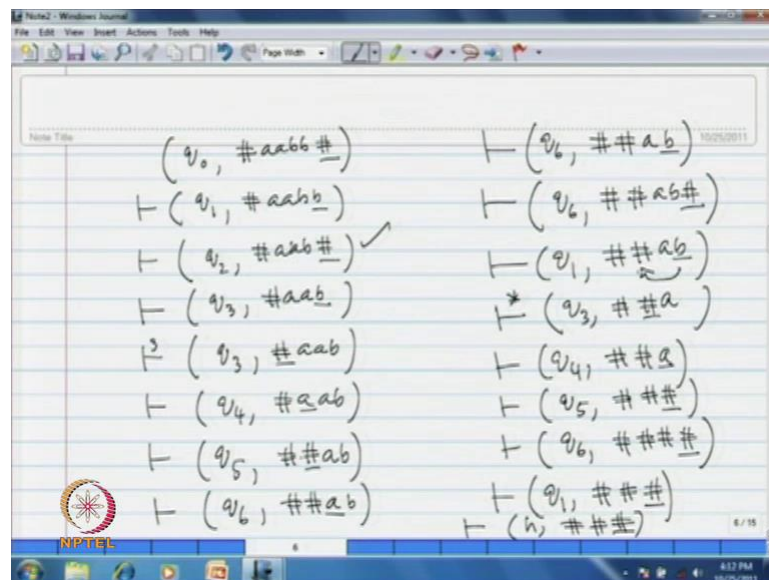 Note2 - Windows Journal
File Edit View Insert Actions Tools Help
Page Width
Note Title
10/25/2011
(q₀, #aabb#)
⊢ (q₁, #aabb)
⊢ (q₂, #aab#) ✓
⊢ (q₃, #aab)
⊢³ (q₃, #aab)
⊢ (q₄, #aab)
⊢ (q₅, ##ab)
⊢ (q₆, ##ab)
⊢ (q₆, ##ab)
⊢ (q₆, ##ab#)
⊢ (q₁, ##ab)
⊢* (q₃, ##a)
⊢ (q₄, ##a)
⊢ (q₅, ###)
⊢ (q₆, ####)
⊢ (q₁, ###)
⊢ (h, ###)
6 / 15
6
NPTEL
4:12 PM
10/25/2011